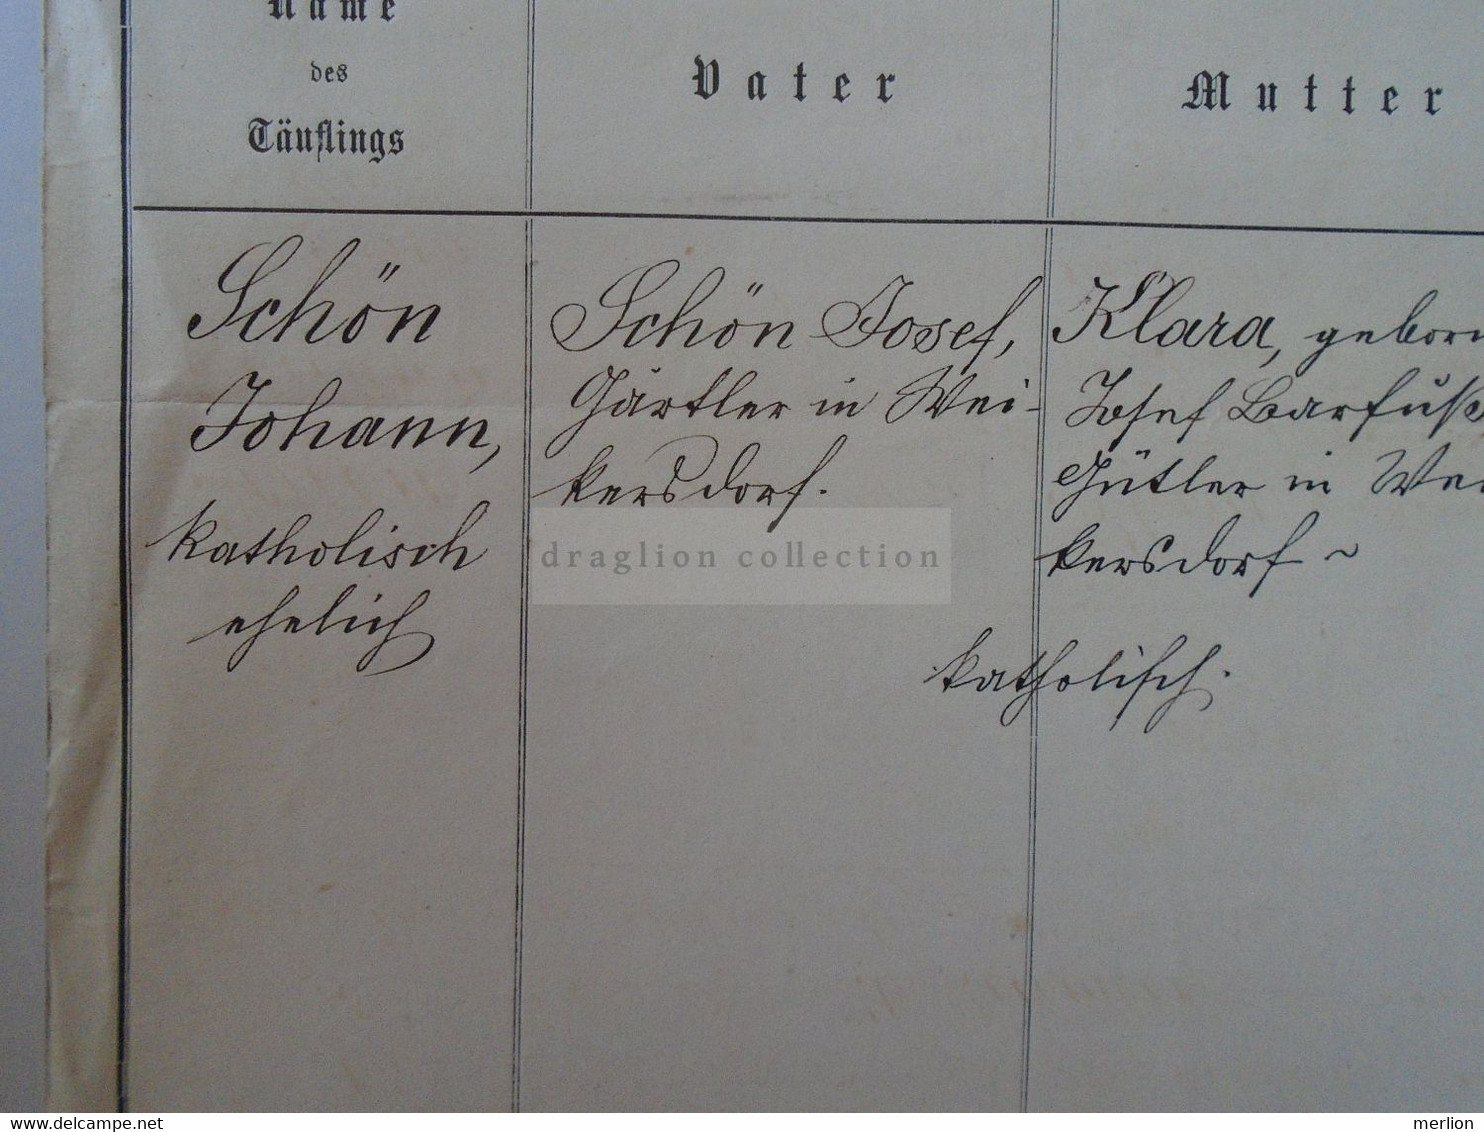 Name
des
Täuflings
Vater
Mutter
Schön
Johann,
katholisch
ehelich
Schön Josef,
Gärtler in Wei-
kersdorf.
Klara, geborn
Josef Barfuß
Gütler in Wei
kersdorf ~
katholisch.
draglion collection
delcampe.net
merlion